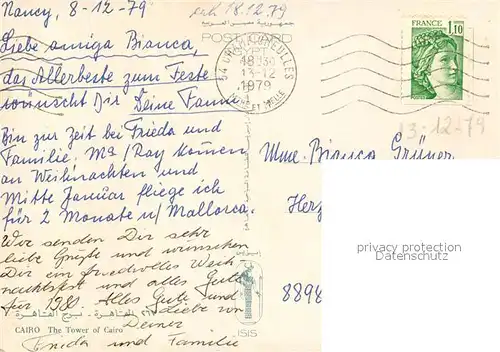 Nancy, 8-12-79
erh. 18.12.79
Liebe amiga Bianca,
das Allerbeste zum Feste
wünscht Dir Deine Fanny
Bin zur Zeit bei Frieda und
Familie. Ma/Ray kommen
an Weihnachten und
Mitte Januar fliege ich
für 2 Monate n/Mallorca.
Wir senden Dir sehr
liebe Grüße und wünschen
Dir ein friedvolles Weih
nachtsfest und alles Gute
für 1980. Alles Gute und
Liebe von
Deiner
Frida und Familie
CAIRO The Tower of Cairo
POST CARD
18H30
13-12
1979
FRANCE
1,10
13-12-79
Mme. Bianca Grüner
Herz
8898
ISIS
privacy protection
Datenschutz